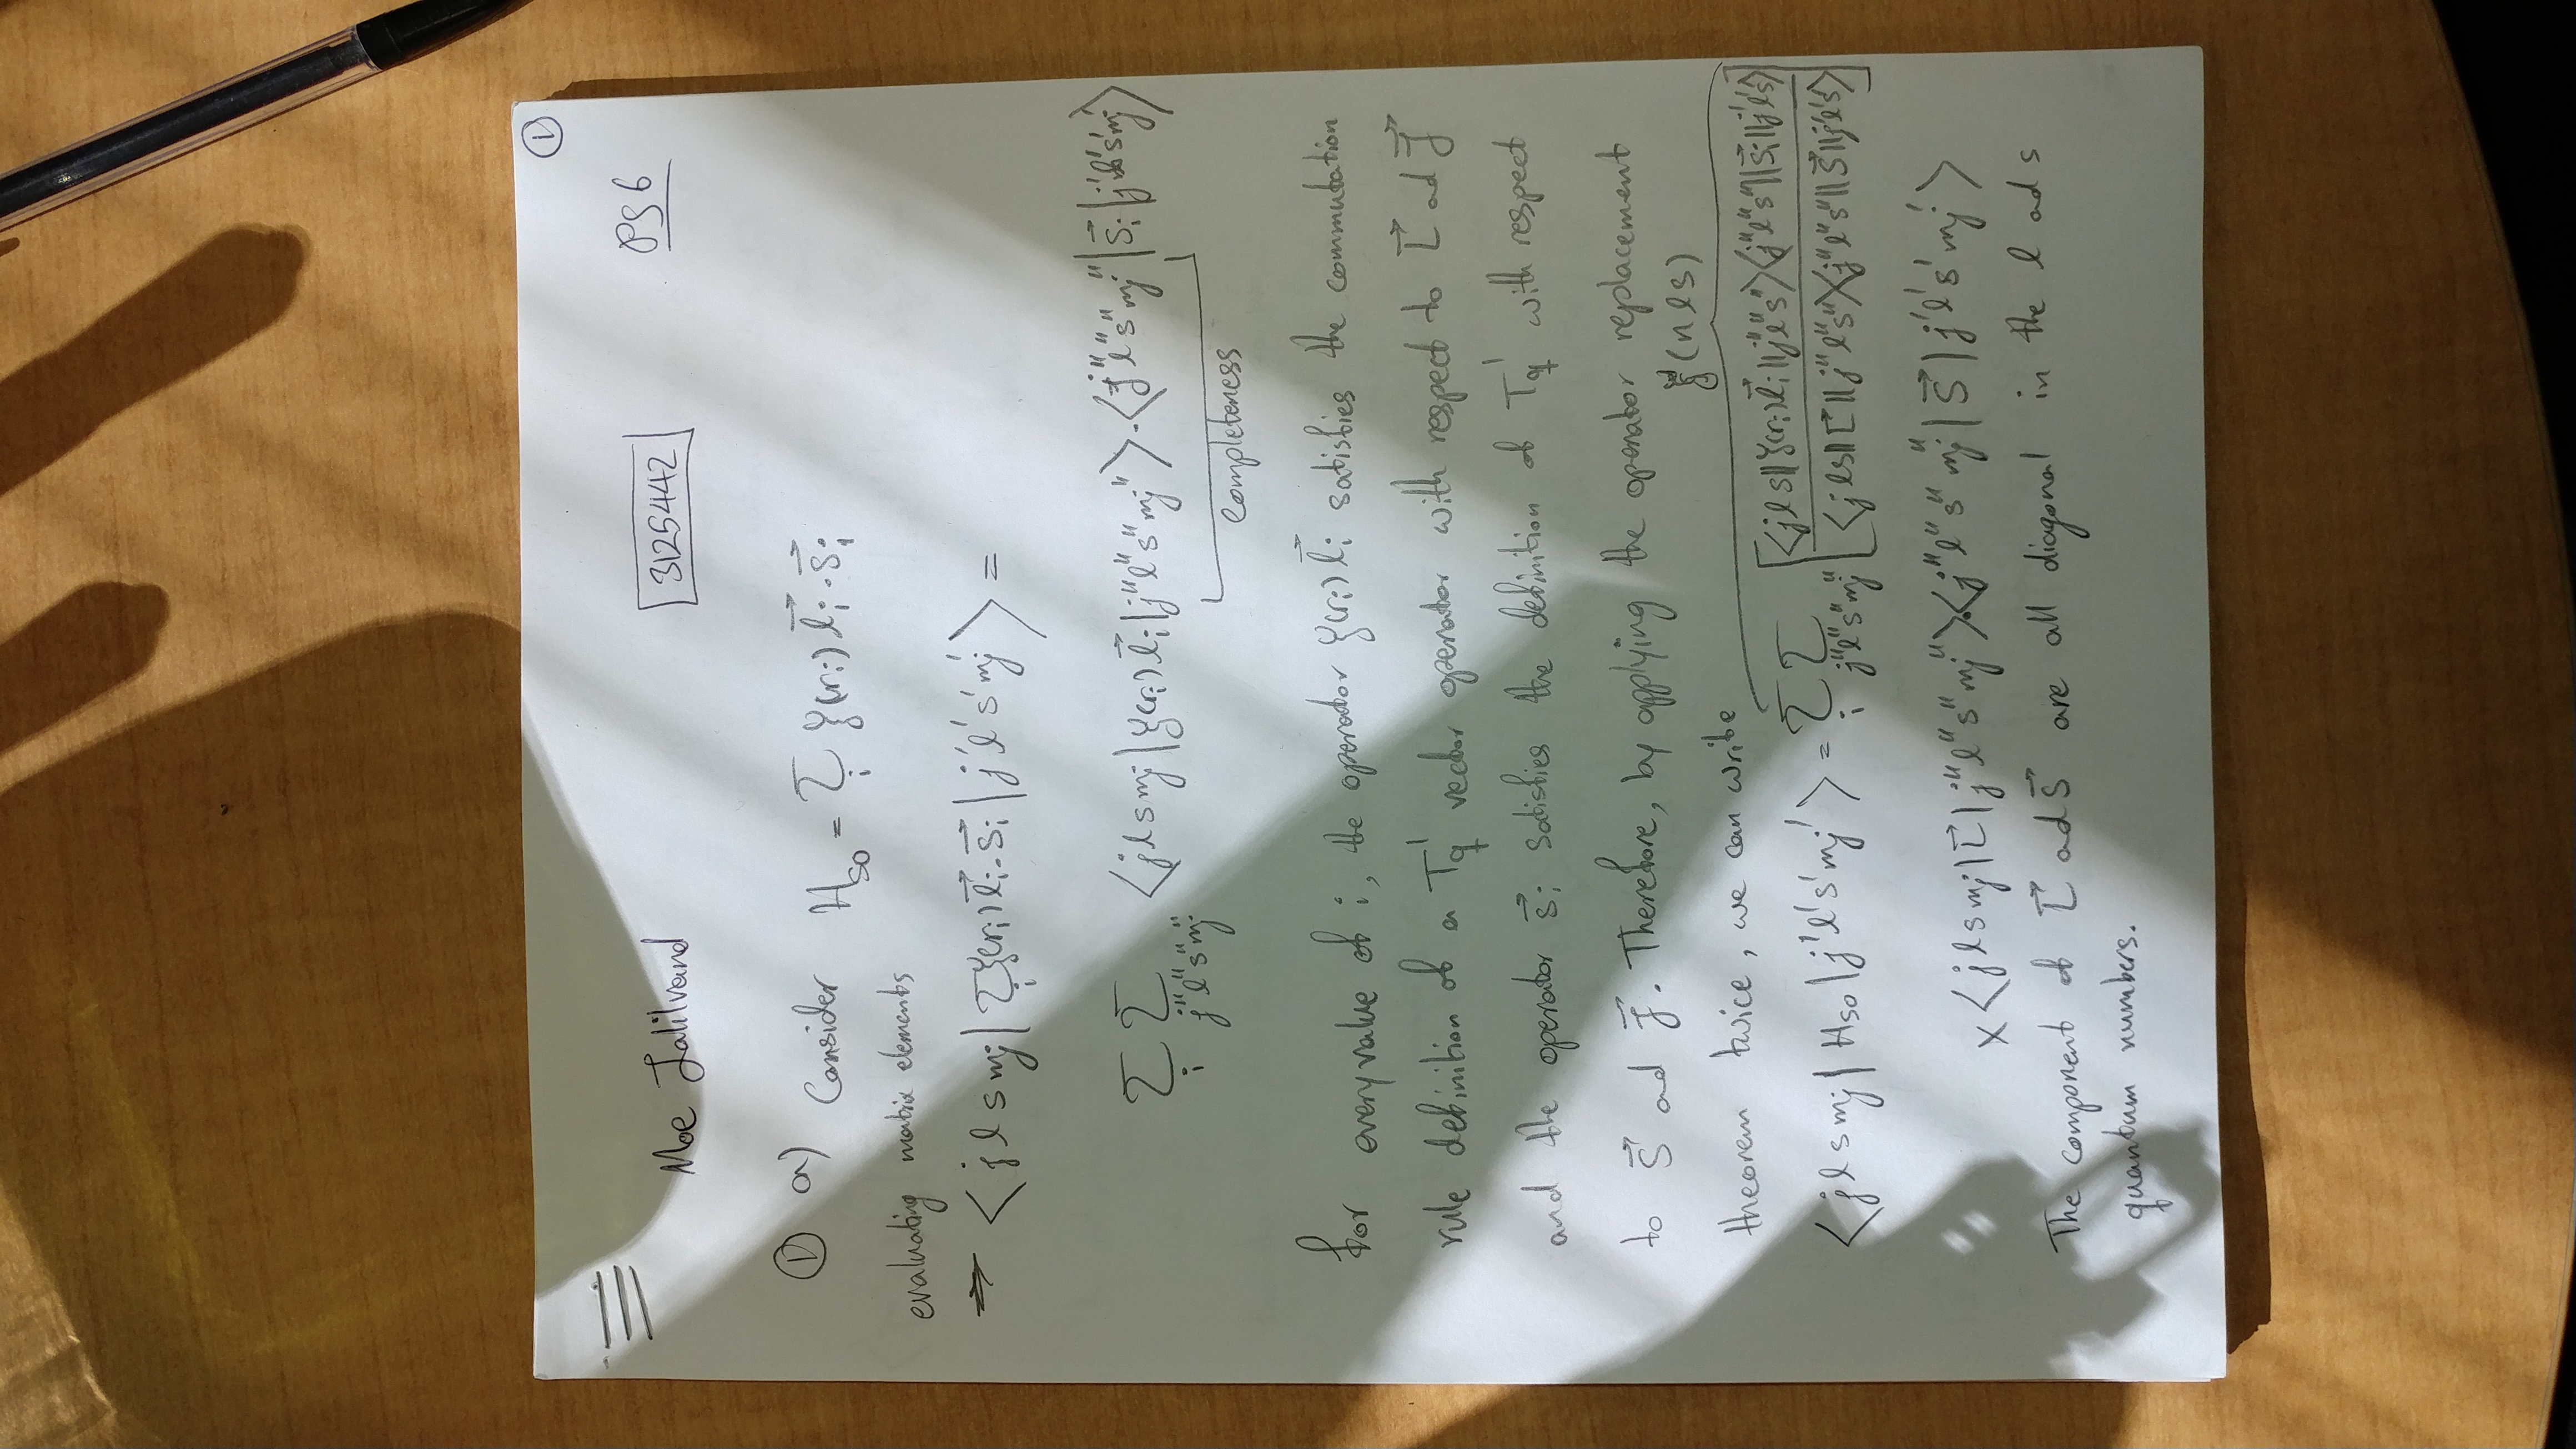 ①
Moe Jalilvand 3125442 PS6
① a) Consider H_so = Σ_i ξ(r_i) l⃗_i · s⃗_i
evaluating matrix elements
⇒ ⟨j l s mj | Σ_i ξ(r_i) l⃗_i · s⃗_i | j' l' s' mj'⟩ =
Σ_i Σ_{j'' l'' s'' mj''} ⟨j l s mj | ξ(r_i) l⃗_i | j'' l'' s'' mj''⟩ · ⟨j'' l'' s'' mj'' | s⃗_i | j' l' s' mj'⟩
Completeness
for every value of i, the operator ξ(r_i) l⃗_i satisfies the commutation
rule definition of a T_q^1 vector operator with respect to L⃗ ad J⃗
and the operator s⃗_i satisfies the definition of T_q^1 with respect
to S⃗ ad J⃗. Therefore, by applying the operator replacement
ξ(n l s)
theorem twice, we can write
⟨j l s mj | H_so | j' l' s' mj'⟩ = Σ_i Σ_{j'' l'' s'' mj''} [⟨j l s || ξ(r_i) l⃗_i || j'' l'' s''⟩⟨j'' l'' s'' || s⃗_i || j' l' s'⟩ / ⟨j l s || L⃗ || j'' l'' s''⟩⟨j'' l'' s'' || S⃗ || j' l' s'⟩]
× ⟨j l s mj | L⃗ | j'' l'' s'' mj''⟩ · ⟨j'' l'' s'' mj'' | S⃗ | j' l' s' mj'⟩
The component of L⃗ ad S⃗ are all diagonal in the l ad s
quantum numbers.